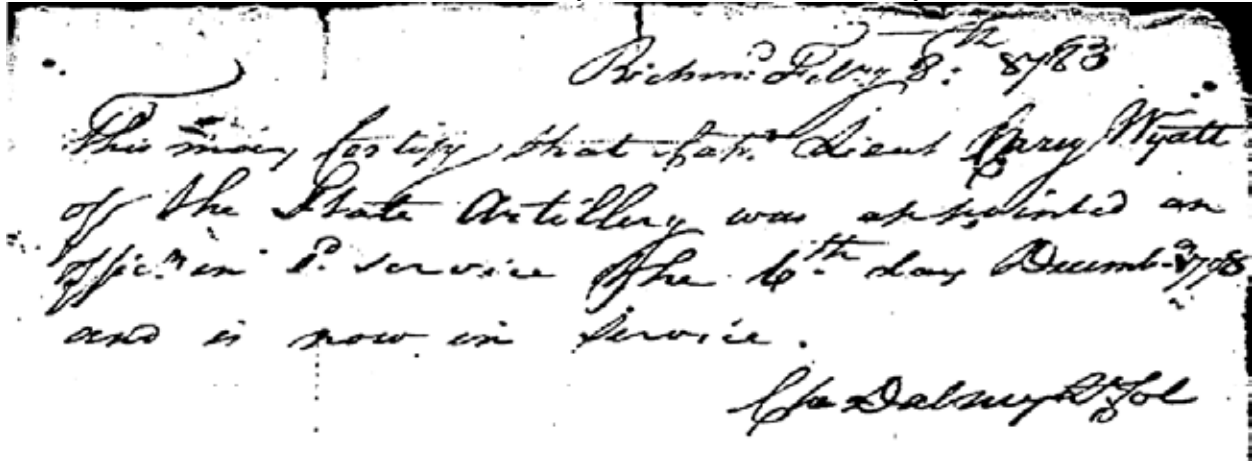 Richmd. Febry 8th 1783
This may Certify that Capt. Lieut Cary Wyatt
of the State Artillery was appointed an
offic.r in sd. service the 6th day Decembr 1778
and is now in Service.
Cha Dabney Lt Col